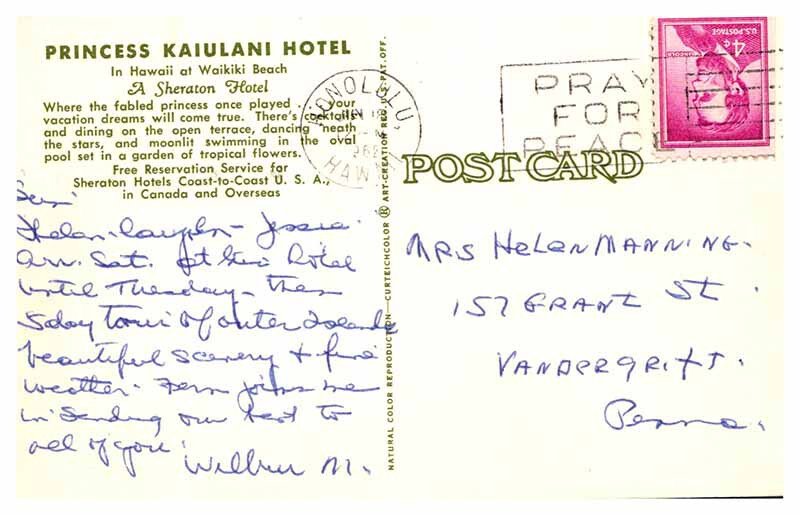 PRINCESS KAIULANI HOTEL
In Hawaii at Waikiki Beach
A Sheraton Hotel
Where the fabled princess once played . . . your
vacation dreams will come true. There's cocktails
and dining on the open terrace, dancing 'neath
the stars, and moonlit swimming in the oval
pool set in a garden of tropical flowers.
Free Reservation Service for
Sheraton Hotels Coast-to-Coast U. S. A.,
in Canada and Overseas
Helen
Arr. Sat. at this hotel
until Tuesday - then
5 day tour of outer Islands
beautiful scenery + fine
weather. Fern joins me
in sending our best to
all of you.
Wilbur M.
NATURAL COLOR REPRODUCTION—CURTEICHCOLOR ® ART-CREATION REG. U.S. PAT. OFF.
HONOLULU,
HAWAII
PRAY
FOR
PEACE
U.S. POSTAGE
4¢
LINCOLN
POST CARD
MRS HELEN MANNING.
157 GRANT ST.
VANDERGRIFT.
Penna.